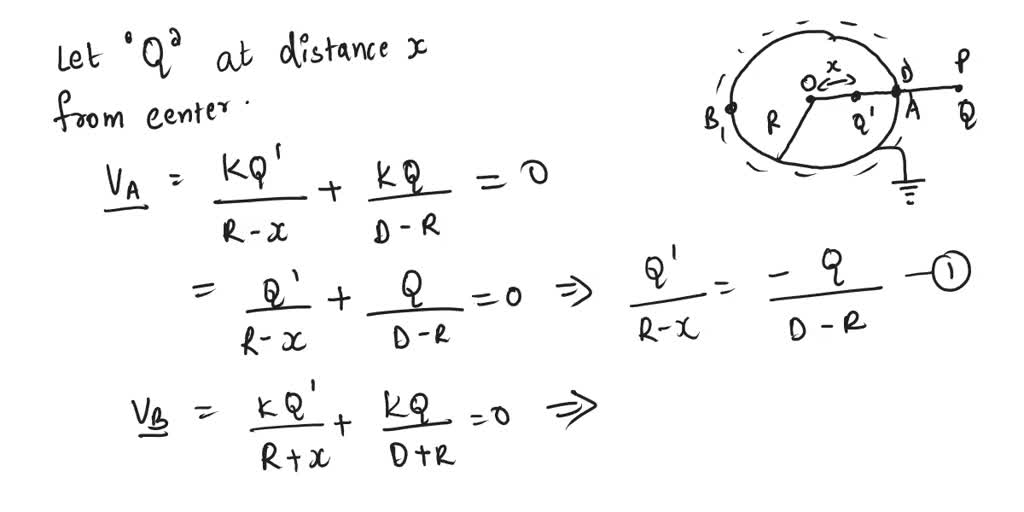 Let 'Q' at distance x
from center.
V_A = KQ'/(R-x) + KQ/(D-R) = 0
= Q'/(R-x) + Q/(D-R) = 0 ⇒ Q'/(R-x) = -Q/(D-R) —①
V_B = KQ'/(R+x) + KQ/(D+R) = 0 ⇒
O x D P
B R Q' A Q